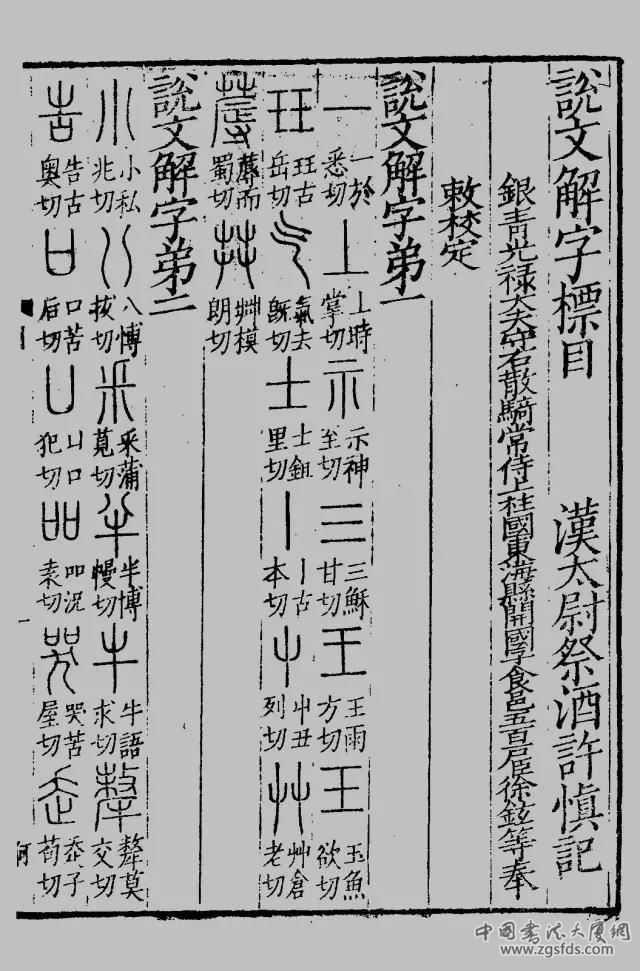 說文解字標目 漢太尉祭酒許慎記
銀青光祿大夫守右散騎常侍上柱國東海縣開國子食邑五百戶臣徐鉉等奉
敕校定
說文解字弟一
一 一於悉切 丄 丄時掌切 示 示神至切 三 三穌甘切 王 王雨方切 玉 玉魚欲切
玨 玨古岳切 气 气去旣切 士 士鉏里切 丨 丨古本切 屮 屮丑列切 艸 艸倉老切
蓐 蓐而蜀切 茻 茻模朗切
說文解字弟二
小 小私兆切 八 八博拔切 釆 釆蒲莧切 半 半博慢切 牛 牛語求切 犛 犛莫交切
告 告古奧切 口 口苦后切 凵 凵口犯切 吅 吅況袁切 哭 哭苦屋切 走 走子苟切
中國書法大廈網
www.zgsfds.com